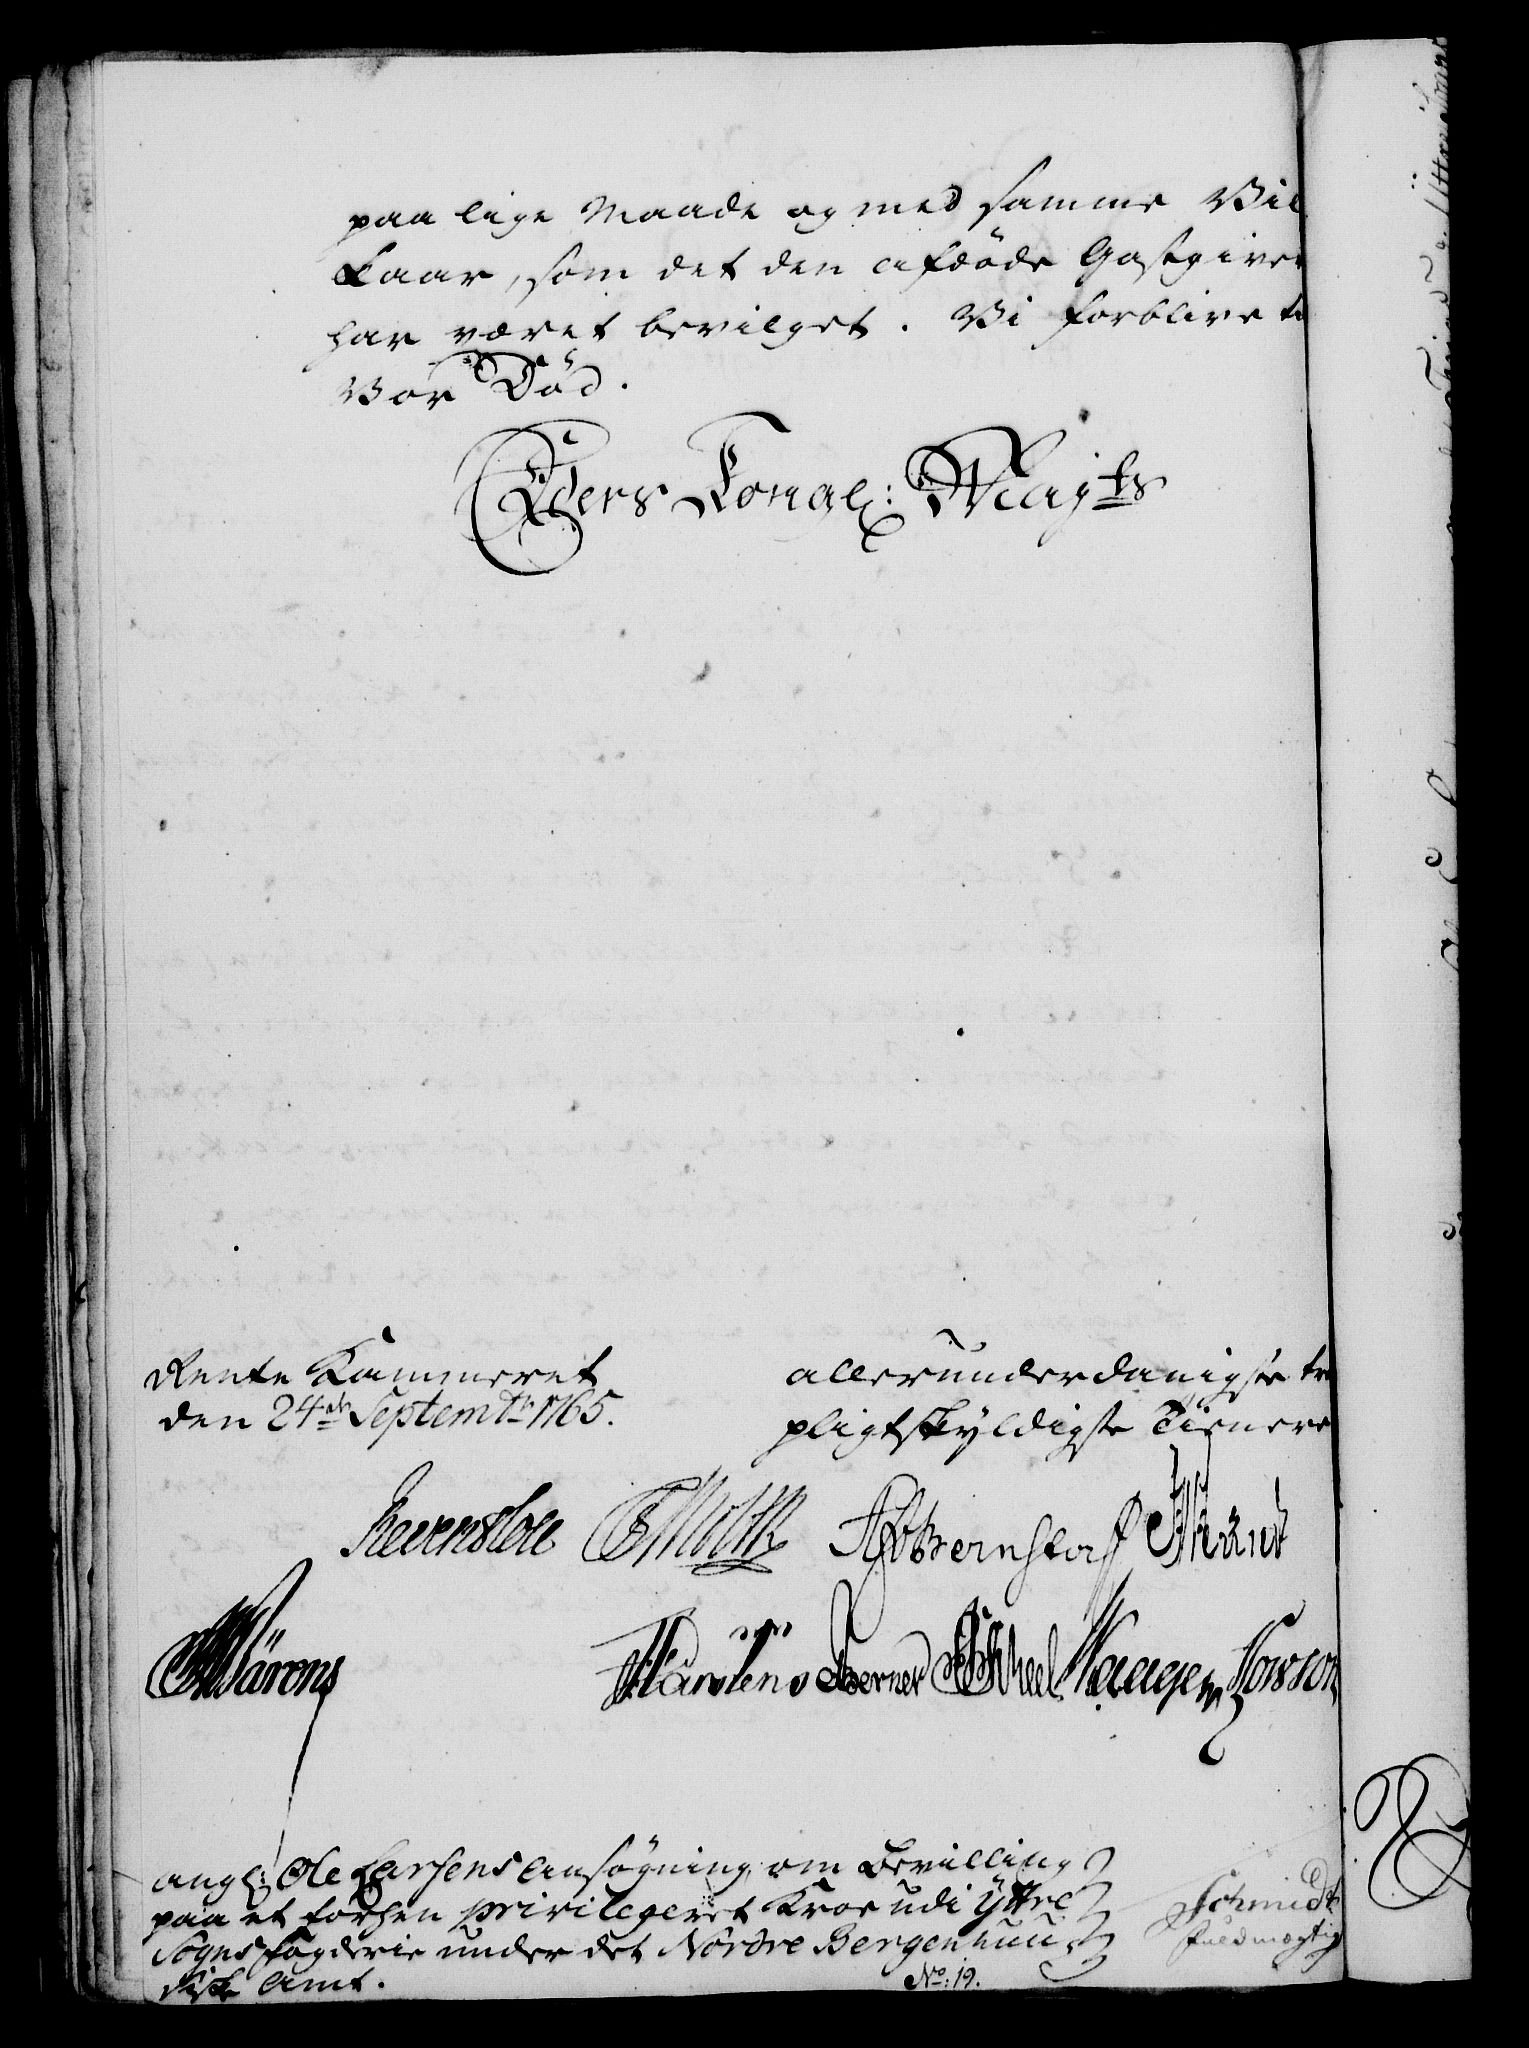 paa lige Maade og med samme Vil
kaar, som det den afdøde Gastgiver
har været bevilget. Vi forblive til
Vor Død.
Eders Kongel: Mayts
Rente Kammeret
den 24de Septembr 1765.
allerunderdanigste tro
pligtskyldigste Tienere
Reventlou Moltke Bernstorf
Wärens Berner Scheel Waagen
angl: Ole Larsens Ansøgning om Bevilling
paa et forhen privilegeret Kroe udi Yttre
Sogns Fogderie under det Nordre Bergenhuu-
siske Amt.
No: 19.
Schmidt
fuldmægtig